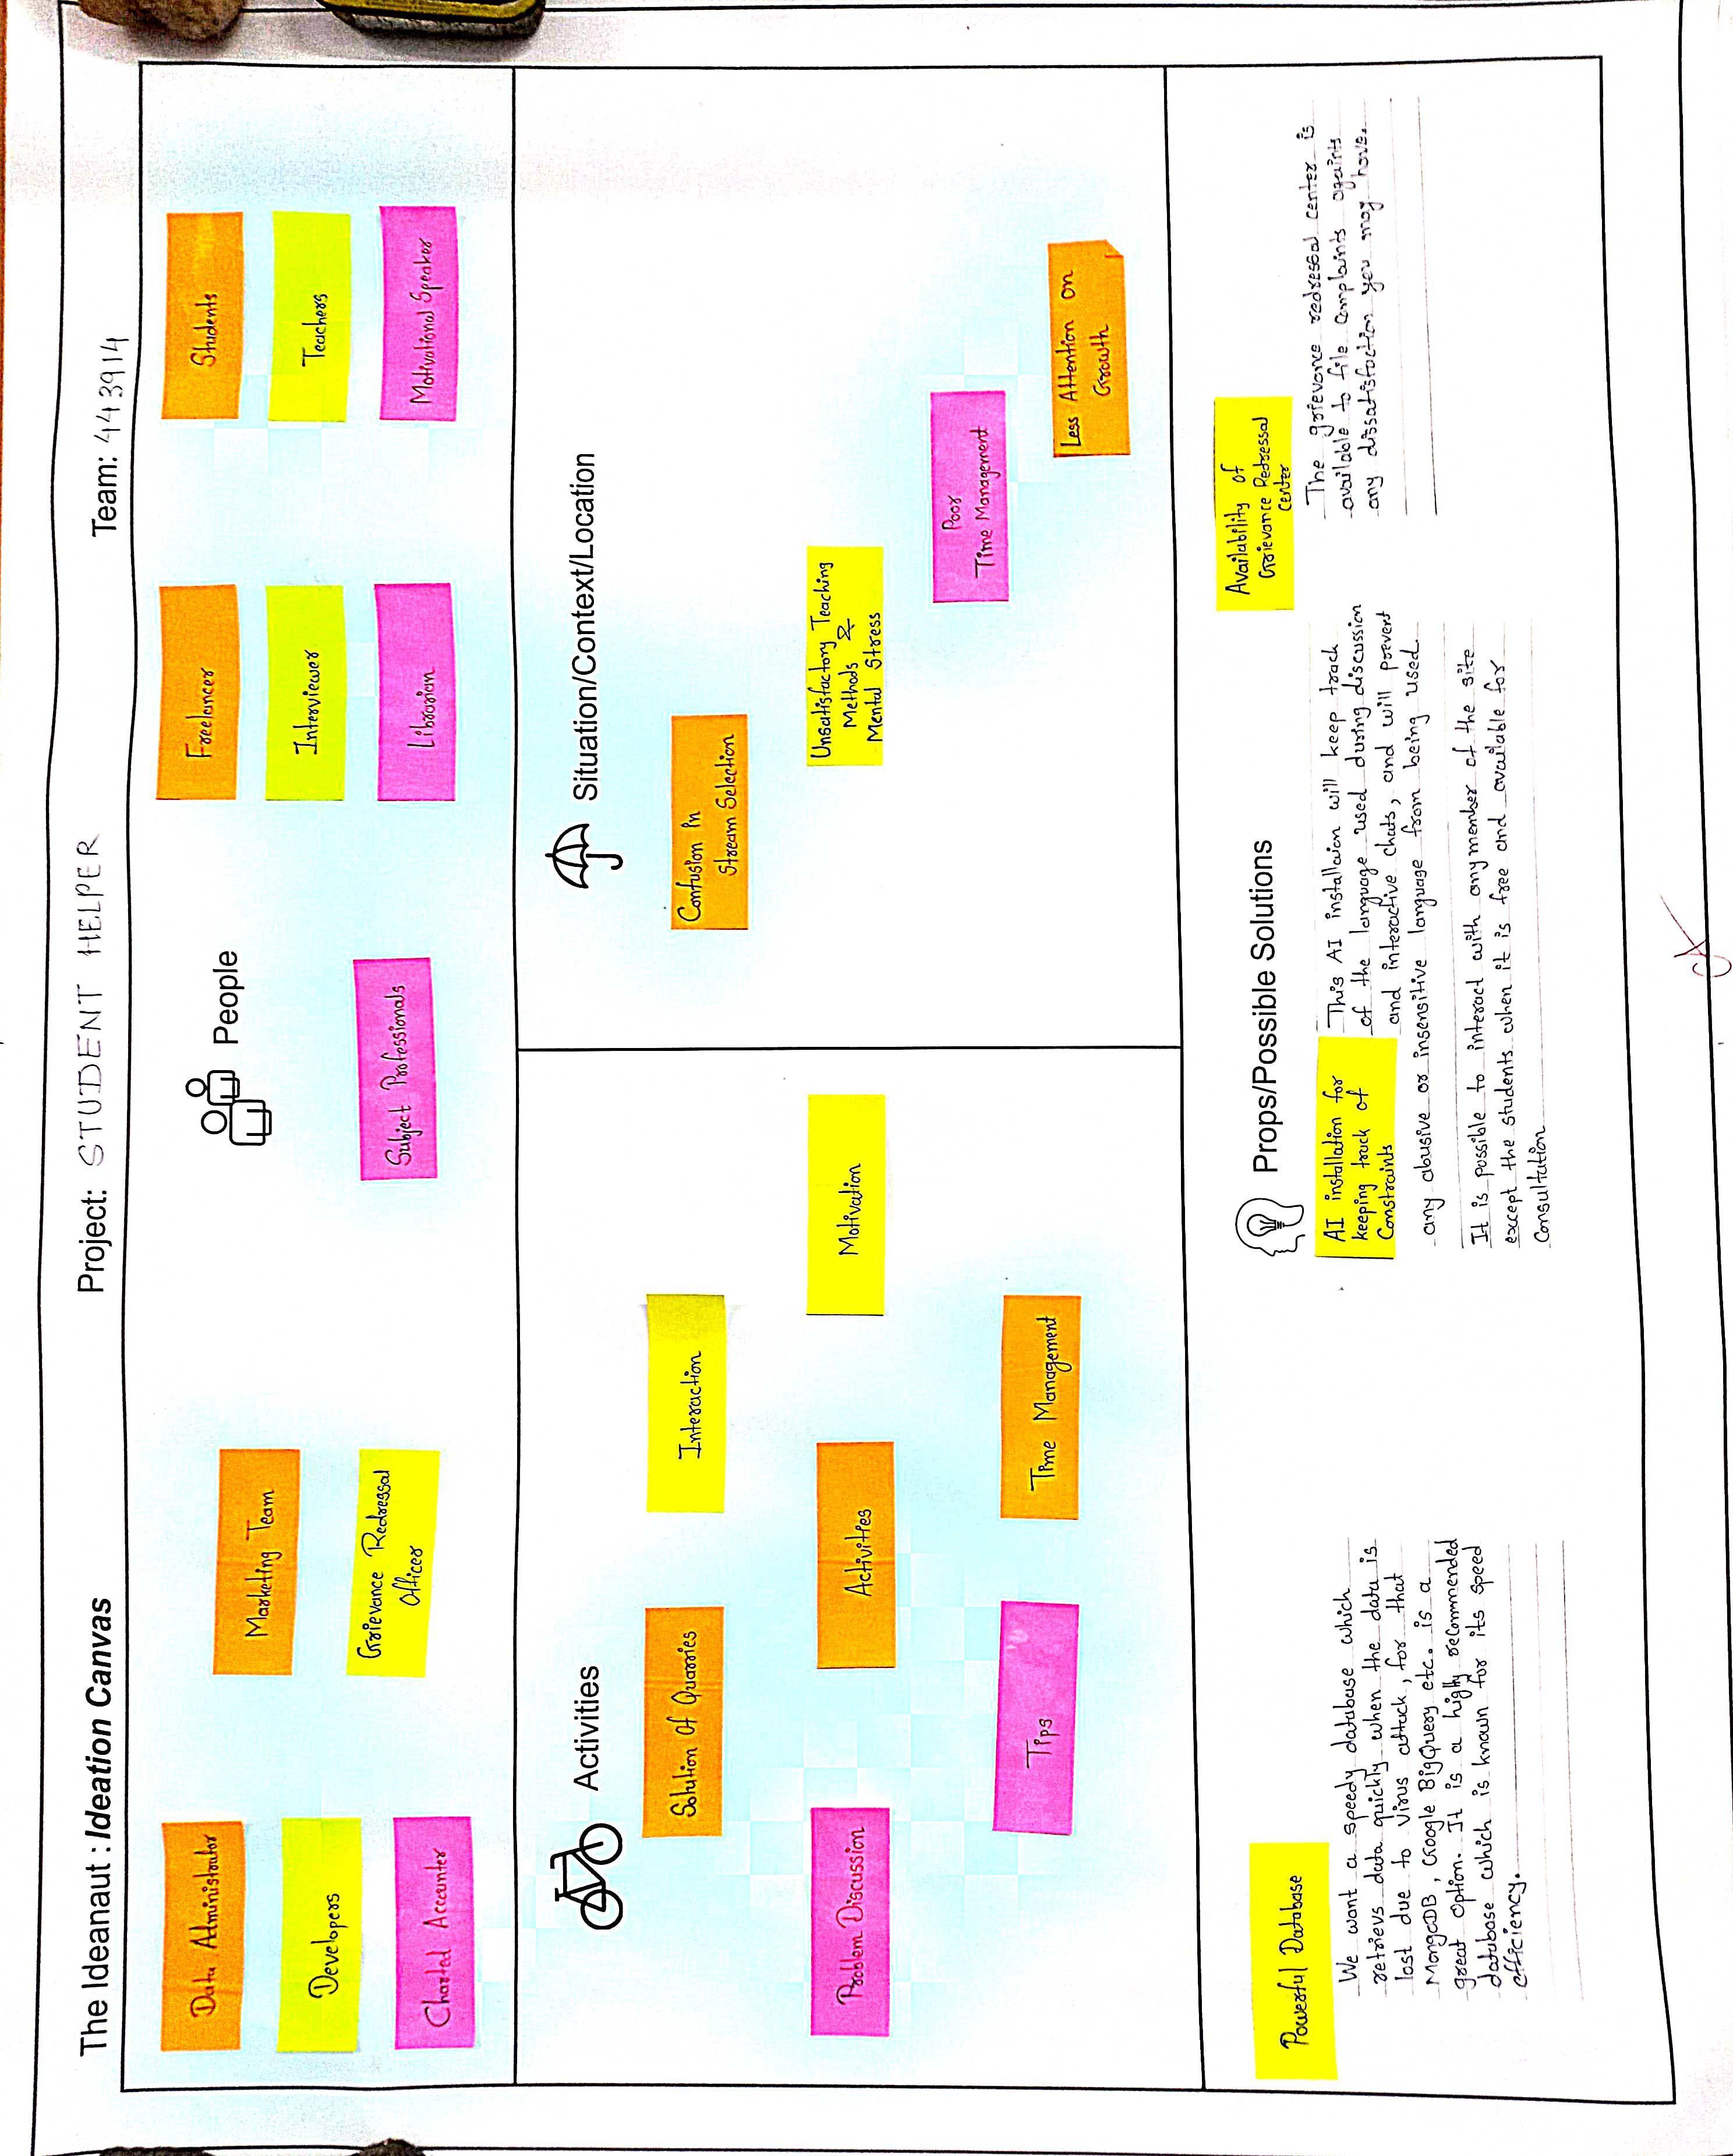 The Ideanaut : Ideation Canvas
Project: STUDENT HELPER
Team: 443914
People
Data Administrator
Developers
Charted Accounter
Marketing Team
Grievance Redressal
Officer
Subject Professionals
Freelancer
Interviewer
Librarian
Students
Teachers
Motivational Speaker
Activities
Solution Of Quarries
Interaction
Problem Discussion
Activities
Motivation
Tips
Time Management
Situation/Context/Location
Confusion In
Stream Selection
Unsatisfactory Teaching
Methods
&
Mental Stress
Poor
Time Management
Less Attention on
Growth
Props/Possible Solutions
Powerful Database
We want a speedy database which
retrievs data quickly when the data is
lost due to virus attack, for that
MongoDB, Google BigQuery etc. is a
great option. It is a highly recommended
database which is known for its speed
efficiency.
AI installation for
keeping track of
Constraints
This AI installaion will keep track
of the language used during discussion
and interactive chats, and will prevent
any abusive or insensitive language from being used.
It is possible to interact with any member of the site
except the students when it is free and available for
Consultation
Availability of
Grievance Redressal
Center
The grievance redressal center is
available to file complaints againts
any dissatisfaction you may have.